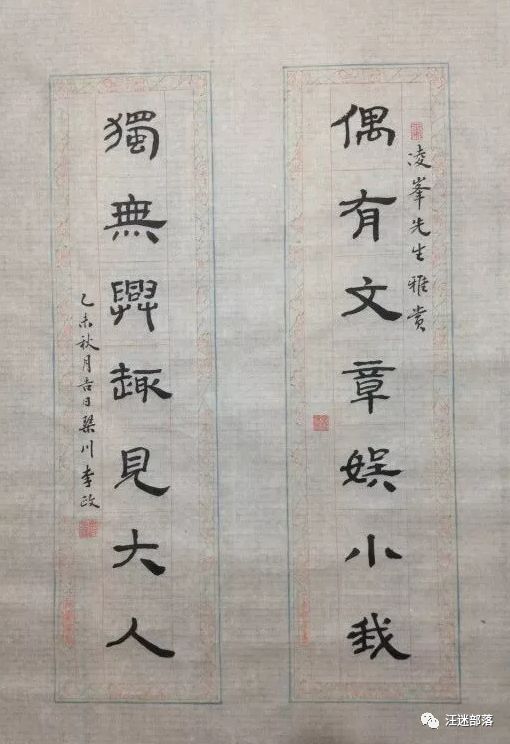 凌峯先生雅賞
偶有文章娛小我
獨無興趣見大人
乙未秋月吉日梁川李政
汪迷部落